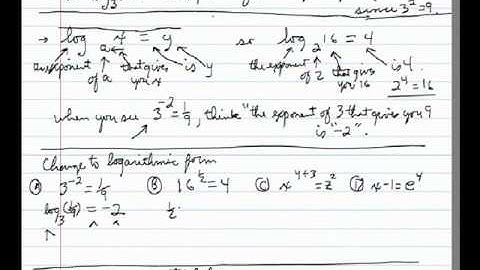 √3
since 3² = 9.
→ log_a x = y so log_2 16 = 4
the exponent of a that gives you x is y the exponent of 2 that gives you 16 is 4.
2⁴ = 16
when you see 3⁻² = 1/9, think "the exponent of 3 that gives you 9
is "-2".
Change to logarithmic form
Ⓐ 3⁻² = 1/9 Ⓑ 16^(1/2) = 4 Ⓒ x^(y+3) = z² Ⓓ x-1 = e^y
log_3 (1/9) = -2 1/2